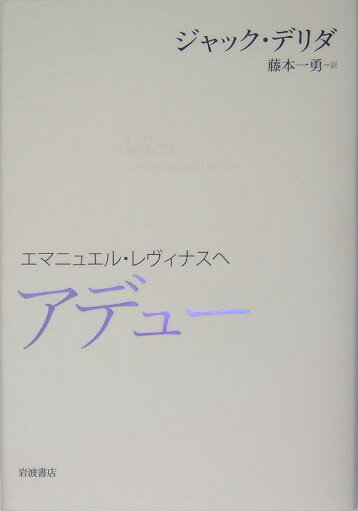 ジャック・デリダ
藤本一勇=訳
Adieu
エマニュエル・レヴィナスへ
アデュー
岩波書店